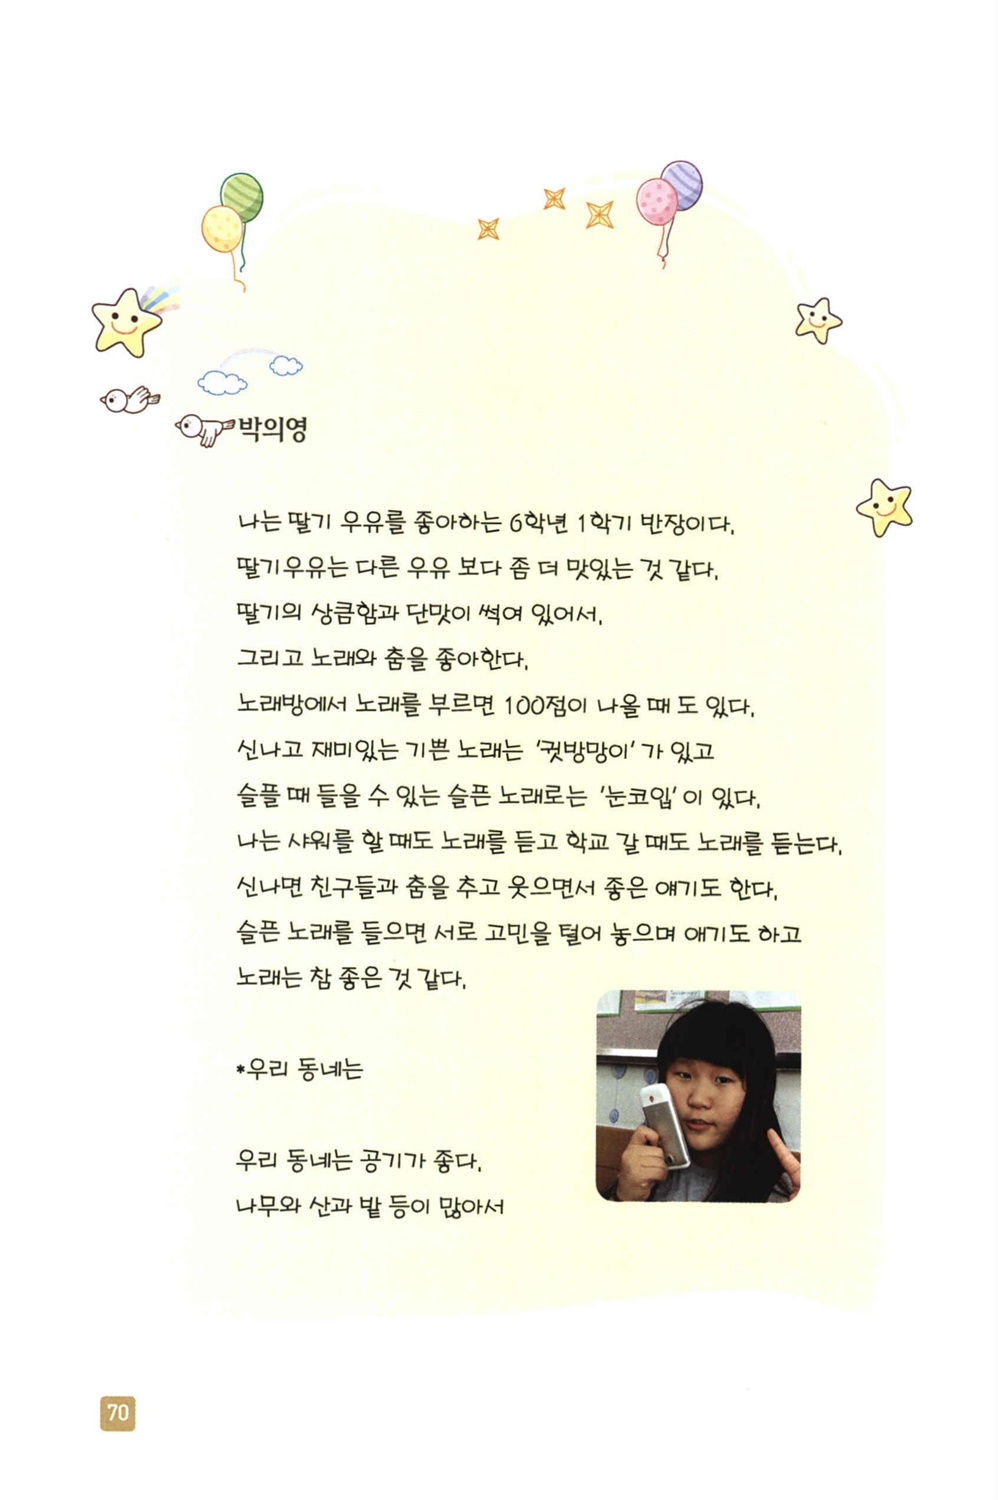 박의영
나는 딸기 우유를 좋아하는 6학년 1학기 반장이다.
딸기우유는 다른 우유 보다 좀 더 맛있는 것 같다.
딸기의 상큼함과 단맛이 썩여 있어서.
그리고 노래와 춤을 좋아한다.
노래방에서 노래를 부르면 100점이 나올 때 도 있다.
신나고 재미있는 기쁜 노래는 '귓방망이' 가 있고
슬플 때 들을 수 있는 슬픈 노래로는 '눈코입' 이 있다.
나는 샤워를 할 때도 노래를 듣고 학교 갈 때도 노래를 듣는다.
신나면 친구들과 춤을 추고 웃으면서 좋은 얘기도 한다.
슬픈 노래를 들으면 서로 고민을 털어 놓으며 얘기도 하고
노래는 참 좋은 것 같다.
*우리 동네는
우리 동네는 공기가 좋다.
나무와 산과 밭 등이 많아서
70